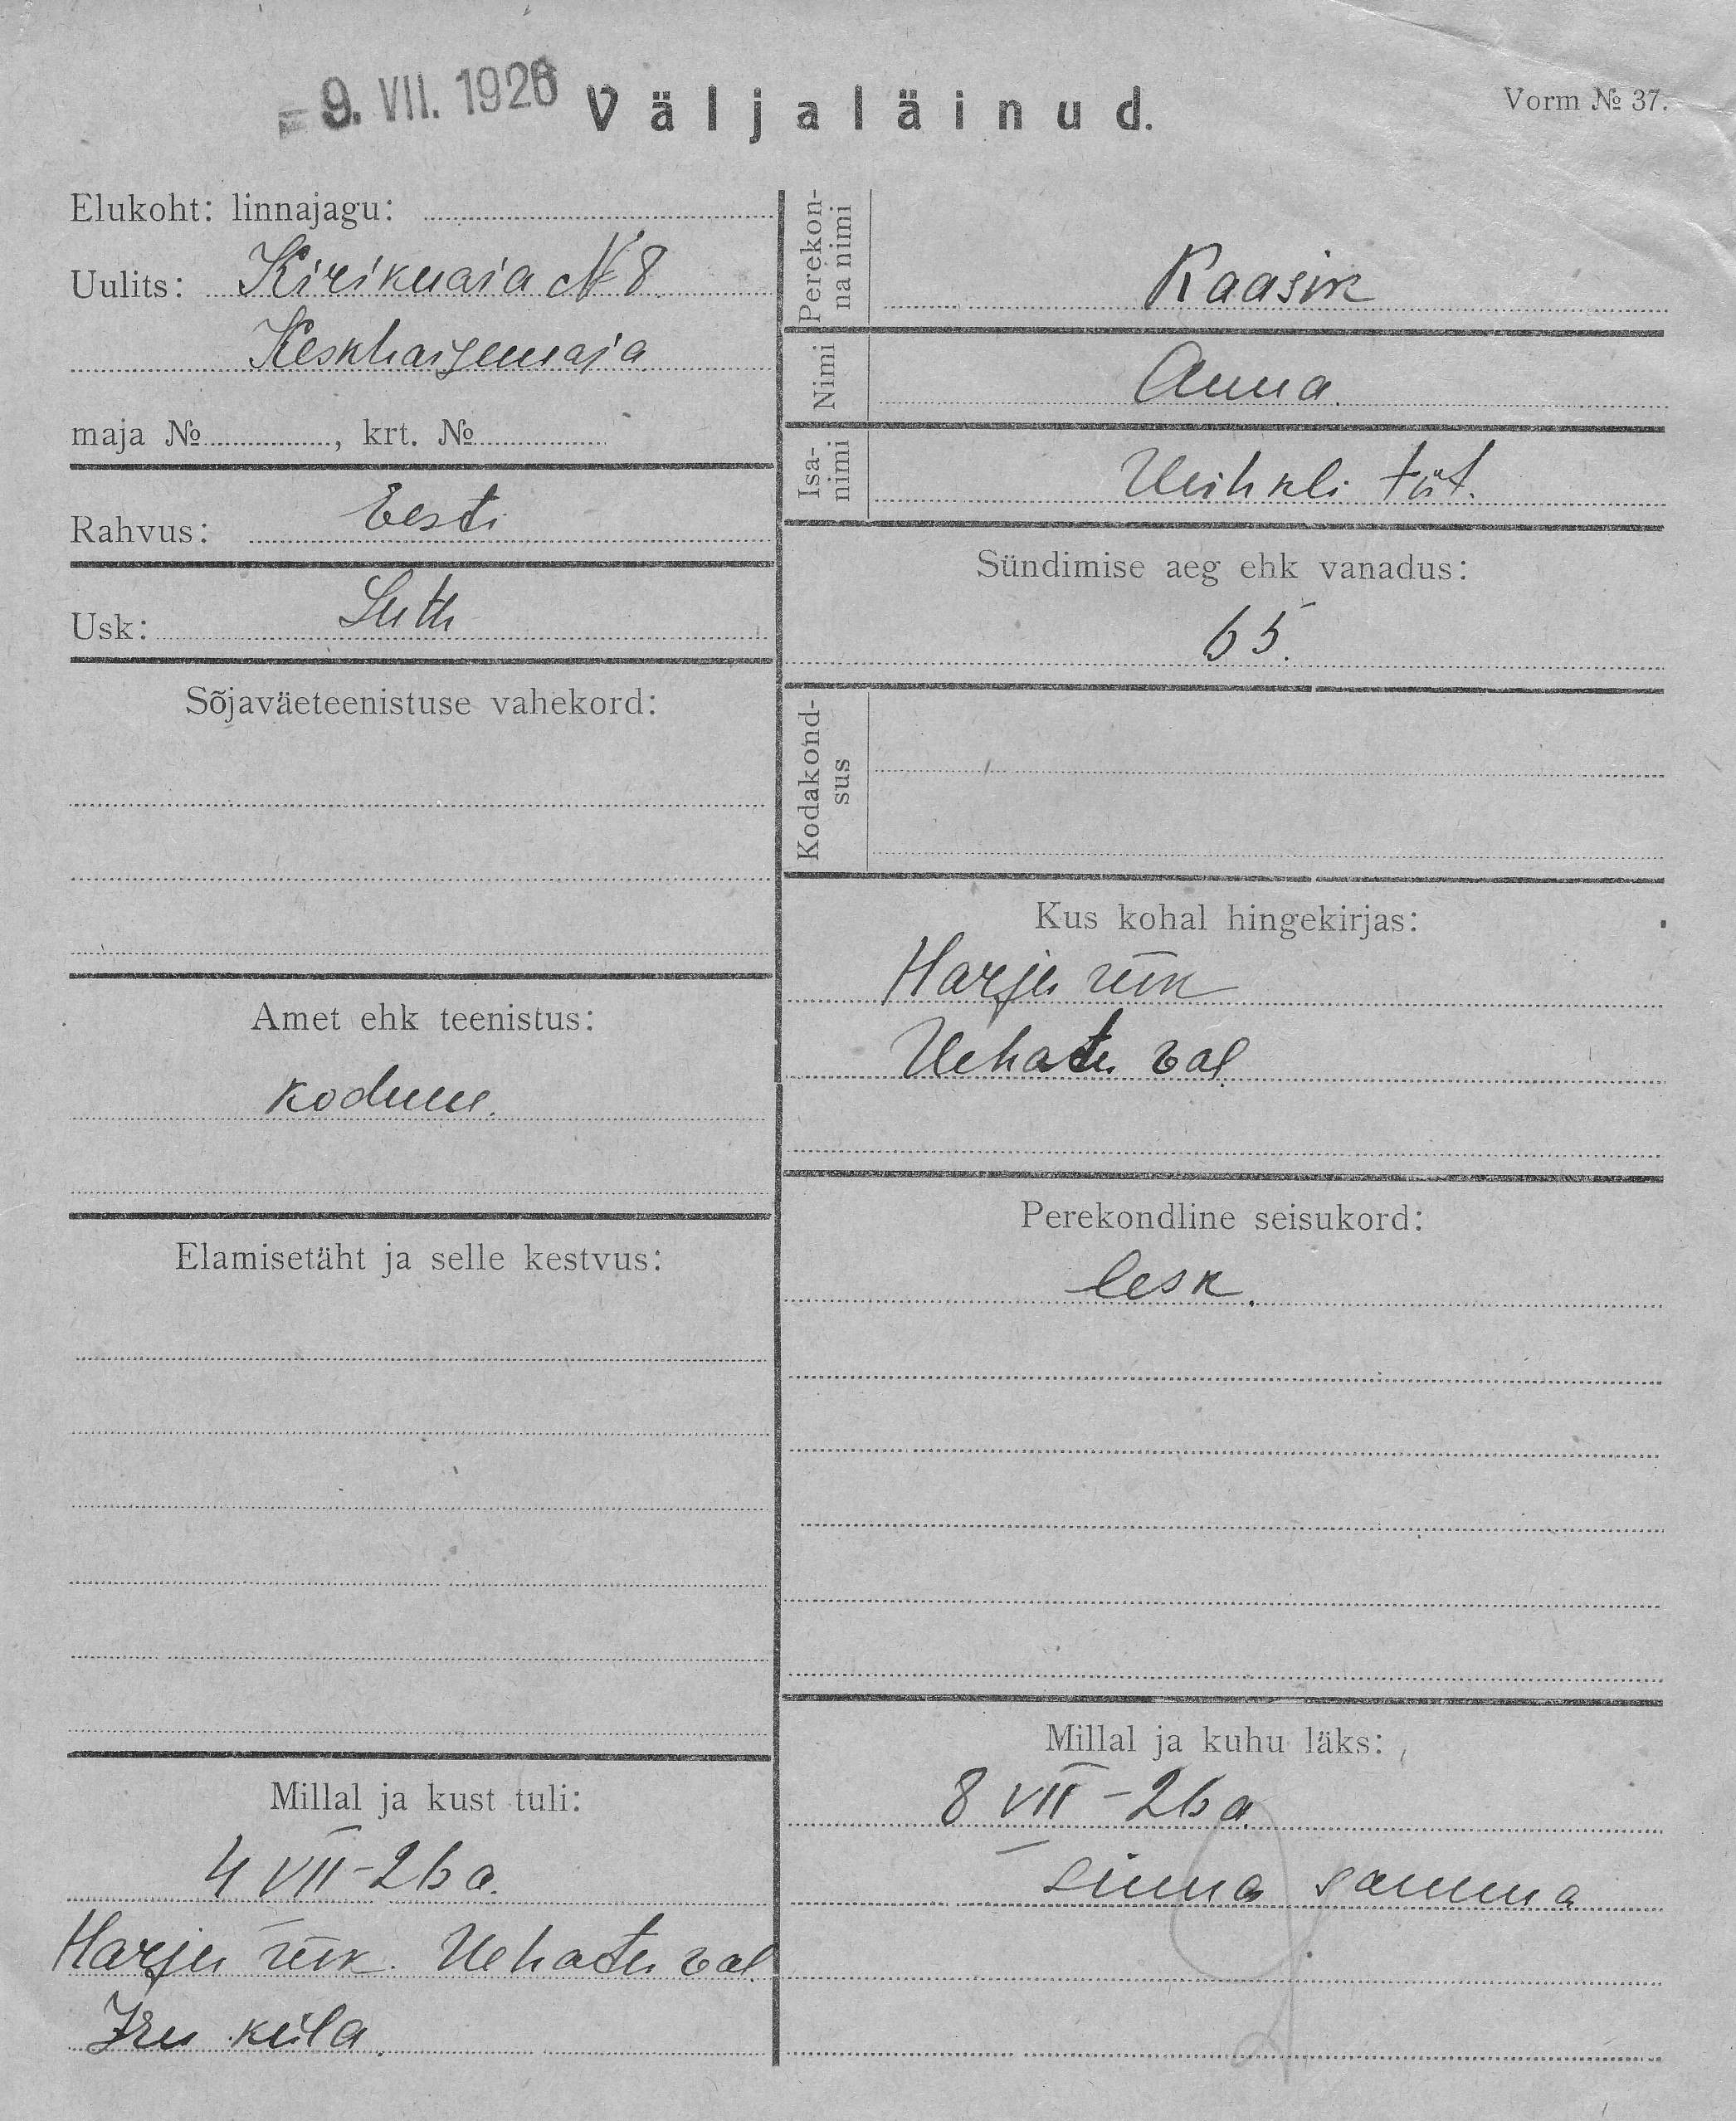 9. VII. 1926
Väljaläinud.
Vorm № 37.
Elukoht: linnajagu:
Uulits: Kirikuaia № 8.
Keskhaigemaja
maja №, krt. №
Rahvus: Eesti
Usk: Luth
Sõjaväeteenistuse vahekord:
Amet ehk teenistus:
kodune.
Elamisetäht ja selle kestvus:
Millal ja kust tuli:
4 VII - 26 a.
Harju rük. Nehatu val.
Iru küla.
Perekonna nimi
Kaasik
Nimi
Anna.
Isanimi
Mihkli tüt.
Sündimise aeg ehk vanadus:
65.
Kodakondsus
Kus kohal hingekirjas:
Harju
Nehatu val.
Perekondline seisukord:
lesk.
Millal ja kuhu läks:
8 VII - 26 a.
sinna samma